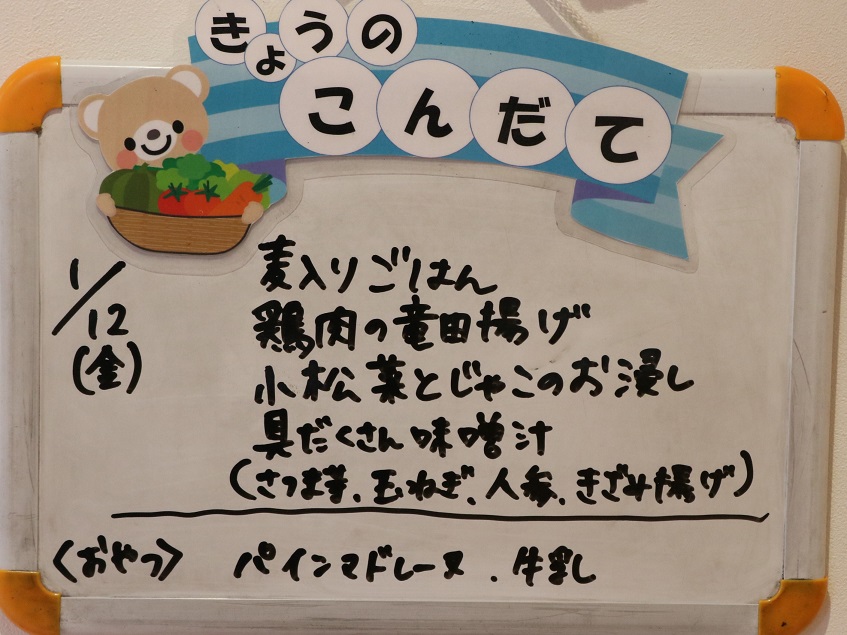 きょうの
こんだて
1/12
(金)
麦入りごはん
鶏肉の竜田揚げ
小松菜とじゃこのお浸し
具だくさん味噌汁
(さつま芋、玉ねぎ、人参、きざみ揚げ)
<おやつ> パインマドレーヌ、牛乳